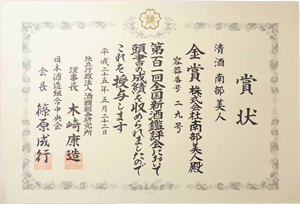 賞状
清酒 南部美人
金賞 株式会社南部美人殿
容器番号 二九号
第百一回全国新酒鑑評会において
頭書の成績を収められましたので
これを授与します
平成二十五年五月二十二日
独立行政法人酒類総合研究所
理事長 木崎康造
日本酒造組合中央会
会長 篠原成行